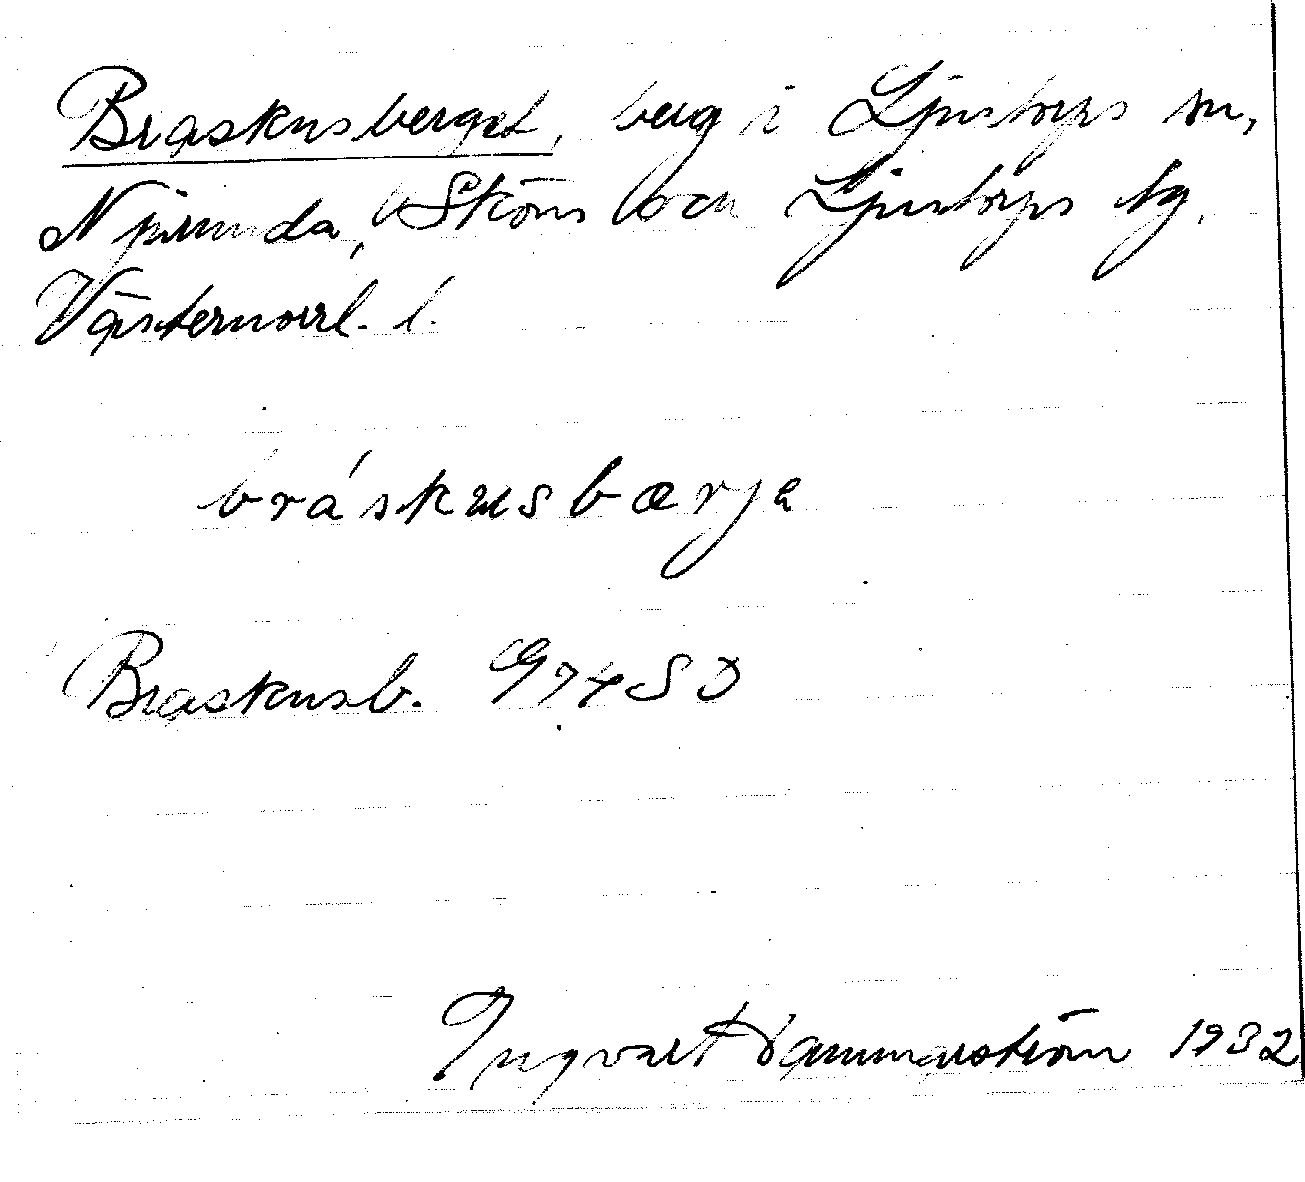 Braskusberget, berg i Ljustorps sn,
Njurunda, Sköns och Ljustorps tg.
Västernorrl. l.
bráskusbærje
Braskusb. G74SO
Ingvart Hammarström 1932